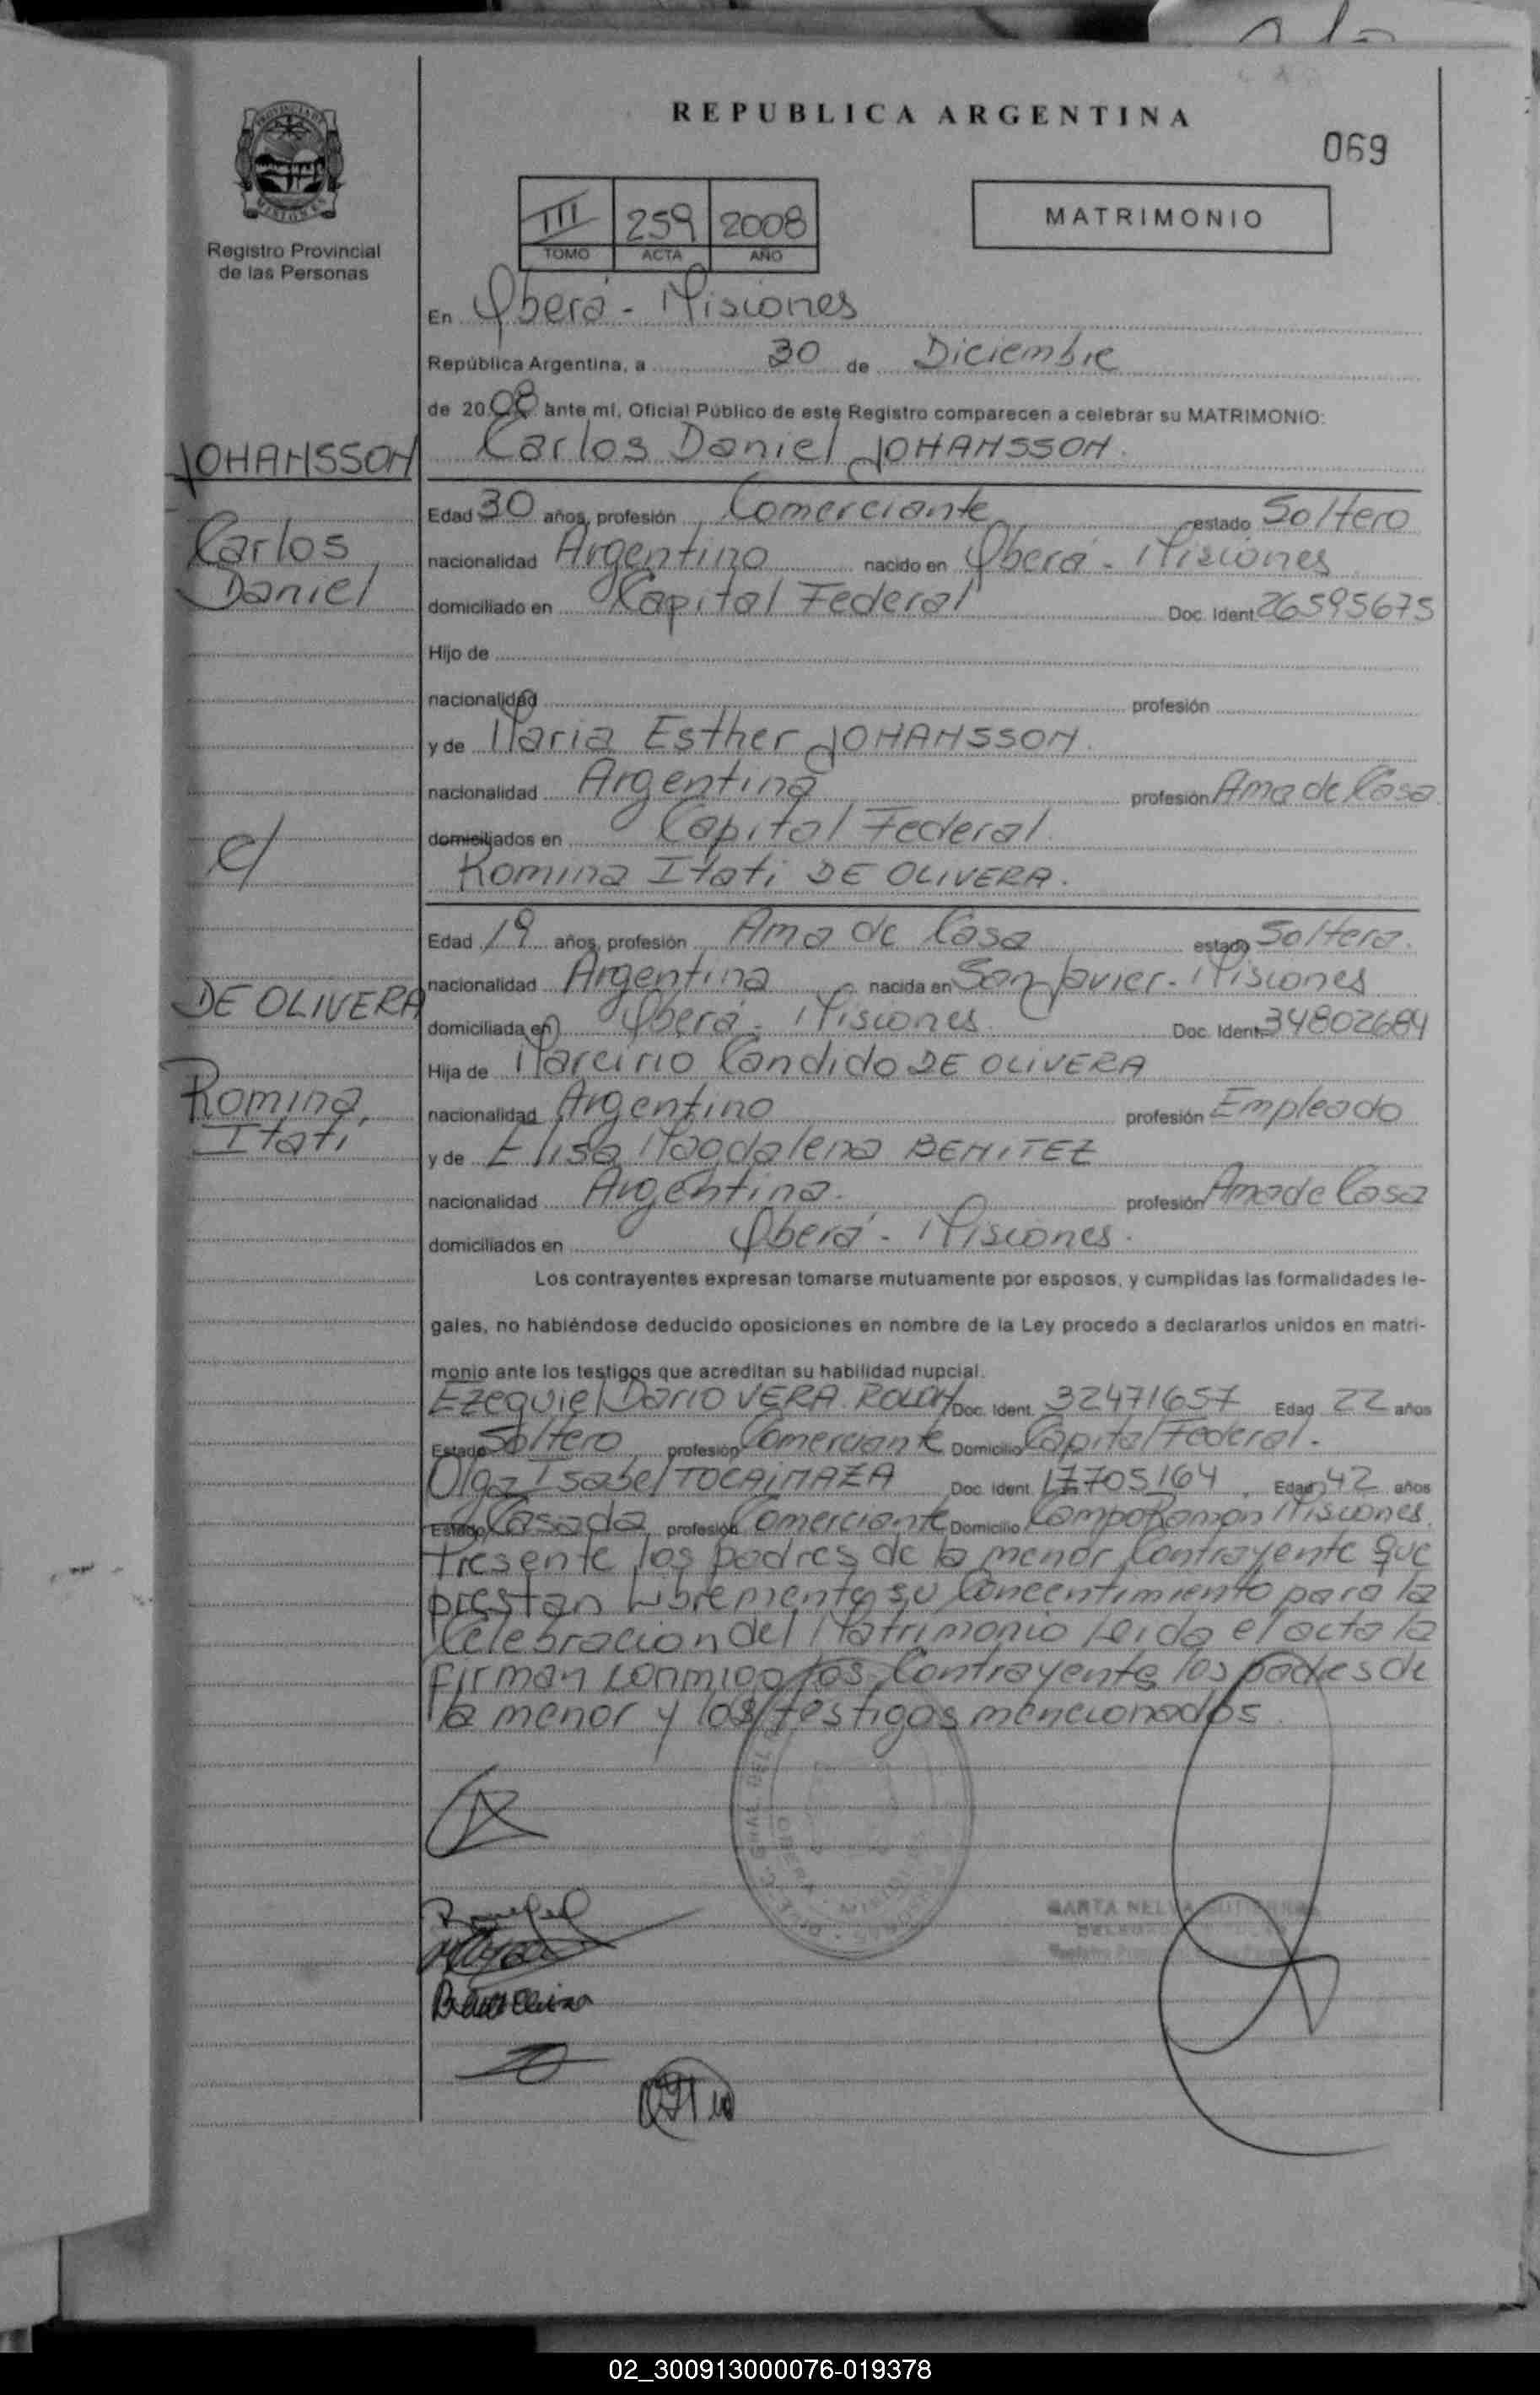 REPUBLICA ARGENTINA
069
III 259 2008
TOMO ACTA AÑO
MATRIMONIO
Registro Provincial
de las Personas
En Oberá - Misiones
República Argentina, a 30 de Diciembre
de 2008 ante mí, Oficial Público de este Registro comparecen a celebrar su MATRIMONIO:
JOHANSSON
Carlos Daniel JOHANSSON.
Carlos
Daniel
Edad 30 años, profesión Comerciante estado Soltero
nacionalidad Argentino nacido en Oberá - Misiones
domiciliado en Capital Federal Doc. Ident. 26595675
Hijo de
nacionalidad profesión
y de Maria Esther JOHANSSON.
nacionalidad Argentina profesión Ama de Casa
domiciliados en Capital Federal.
c/
Romina Itati DE OLIVERA.
Edad 19 años, profesión Ama de Casa estado Soltera.
nacionalidad Argentina nacida en San Javier - Misiones
DE OLIVERA
domiciliada en Oberá - Misiones. Doc. Ident. 34802684
Hija de Marcirio Candido DE OLIVERA
Romina
Itati
nacionalidad Argentino profesión Empleado
y de Elisa Magdalena BENITEZ
nacionalidad Argentina. profesión Ama de Casa
domiciliados en Oberá - Misiones.
Los contrayentes expresan tomarse mutuamente por esposos, y cumplidas las formalidades le-
gales, no habiéndose deducido oposiciones en nombre de la Ley procedo a declararlos unidos en matri-
monio ante los testigos que acreditan su habilidad nupcial.
Ezequiel Dario VERA ROLON Doc. Ident. 32471657 Edad 22 años
Estado Soltero profesión Comerciante Domicilio Capital Federal.
Olga Isabel TOCAIMAZA Doc. Ident. 17705164 Edad 42 años
Estado Casada profesión Comerciante Domicilio Campo Ramon Misiones.
Presente los padres de la menor Contrayente que
prestan Libremente su Concentimiento para la
Celebracion del Matrimonio Leida el acta la
firman conmigo los Contrayente los padres de
la menor y los testigos mencionados.
02_300913000076-019378